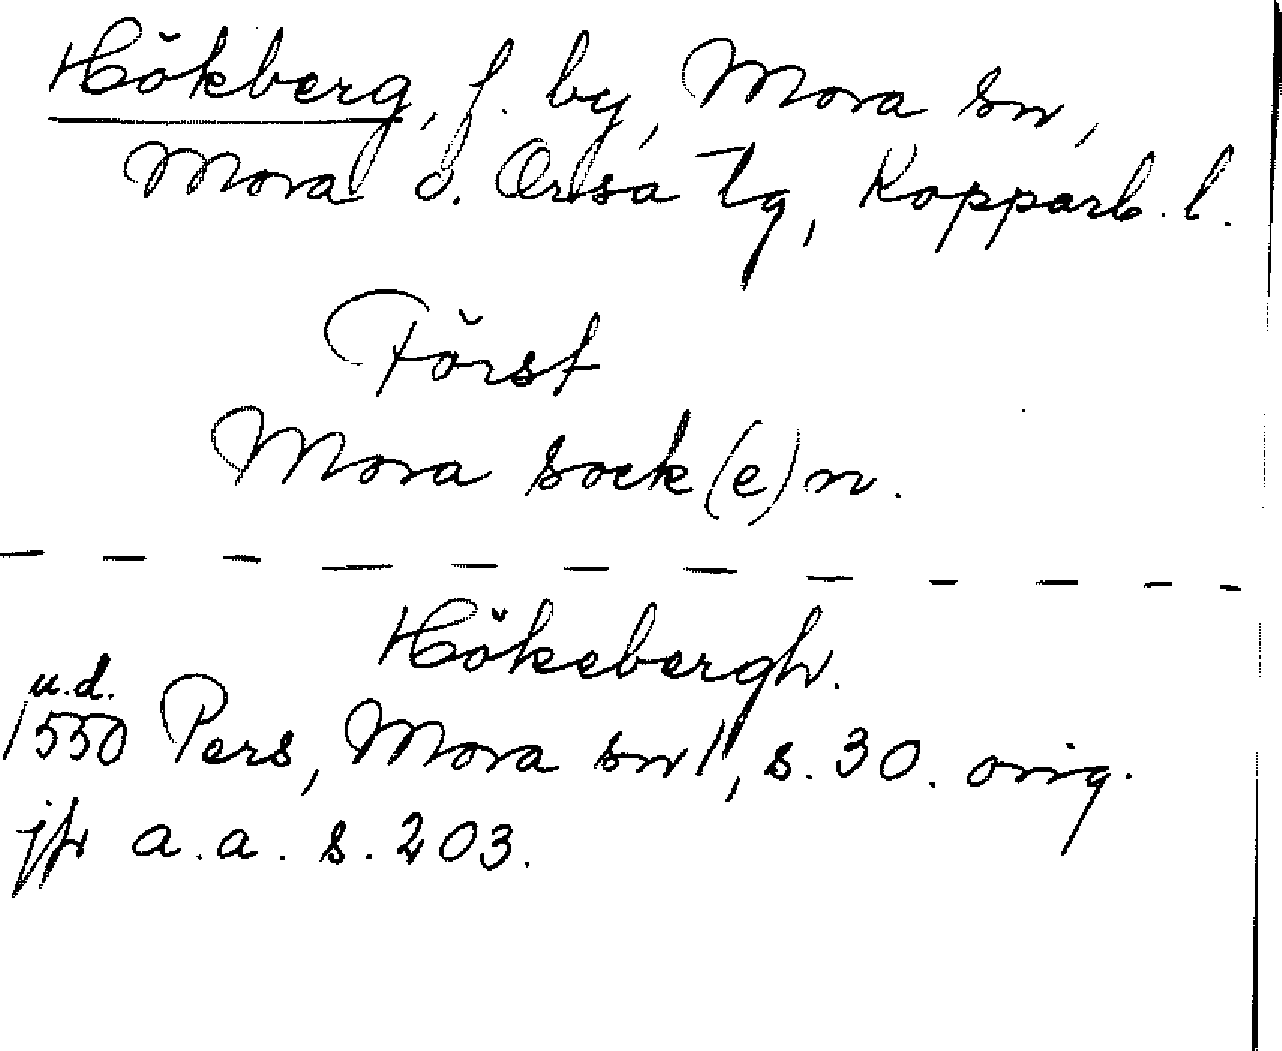 Hökberg, f. by, Mora sn,
Mora o. Orsa tg, Kopparb. l.
Först
Mora sock(e)n.
Hökebergh.
u.d.
1550 Pers, Mora sn 1, s. 30. orig.
jfr a.a. s. 203.